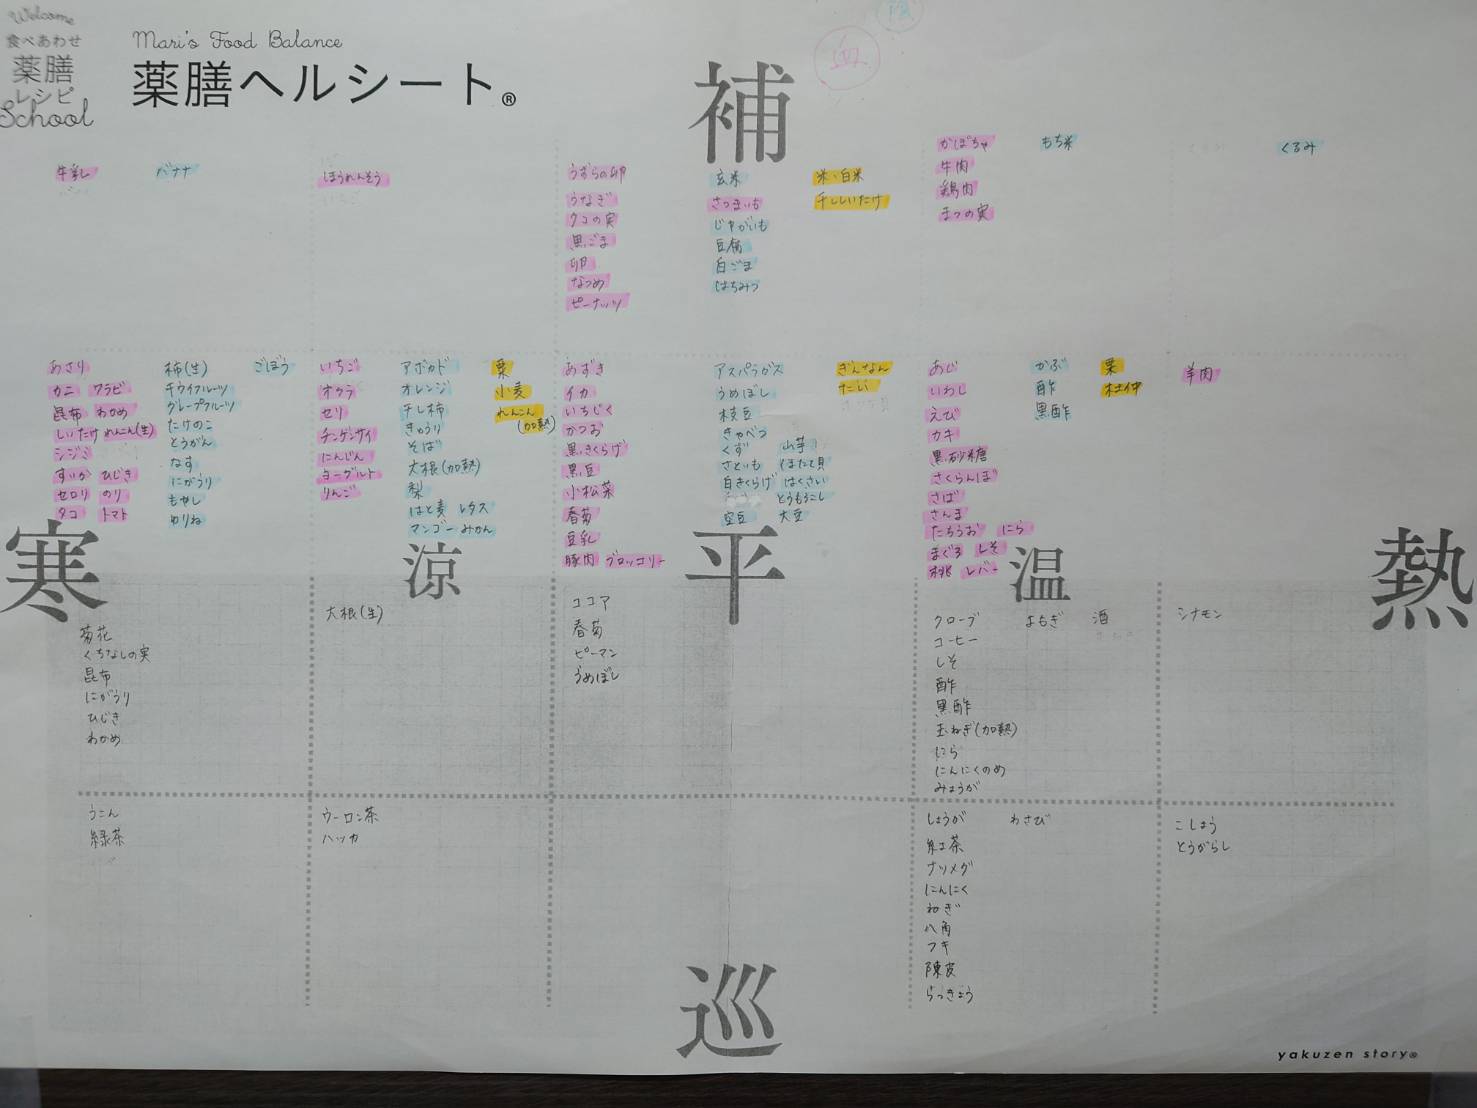 Welcome
食べあわせ
薬膳
レシピ
School
Mari's Food Balance
薬膳ヘルシート®
陰
血
補
牛乳 バナナ
ほうれんそう
うずらの卵 玄米 米・白米
うなぎ さつまいも 干ししいたけ
クコの実 じゃがいも
黒ごま 豆腐
卵 白ごま
なつめ はちみつ
ピーナッツ
かぼちゃ もち米
牛肉
鶏肉
まつの実
くるみ
あさり 柿(生) ごぼう
カニ ワラビ キウイフルーツ
昆布 わかめ グレープフルーツ
しいたけ れんこん(生) たけのこ
シジミ とうがん
すいか ひじき なす
セロリ のり にがうり
タコ トマト もやし
ゆりね
いちご アボカド 粟
オクラ オレンジ 小麦
セリ 干し柿 れんこん
(加熱)
チンゲンサイ きゅうり
にんじん そば
ヨーグルト 大根(加熱)
りんご 梨
はと麦 レタス
マンゴー みかん
あずき アスパラガス ぎんなん
イカ うめぼし たい
いちじく 枝豆
かつお きゃべつ
黒きくらげ くず 山芋
黒豆 さといも ほたて貝
小松菜 白きくらげ はくさい
春菊 とうもろこし
豆乳 空豆 大豆
豚肉 ブロッコリー
あじ かぶ 栗
いわし 酢 杜仲
えび 黒酢
カキ
黒砂糖
さくらんぼ
さば
さんま
たちうお にら
まぐろ しそ
桃 レバー
羊肉
寒 涼 平 温 熱
菊花
くちなしの実
昆布
にがうり
ひじき
わかめ
大根(生)
ココア
春菊
ピーマン
うめぼし
クローブ よもぎ 酒
コーヒー
しそ
酢
黒酢
玉ねぎ(加熱)
にら
にんにくのめ
みょうが
シナモン
うこん
緑茶
ウーロン茶
ハッカ
しょうが わさび
紅茶
ナツメグ
にんにく
ねぎ
八角
フキ
陳皮
らっきょう
こしょう
とうがらし
巡
yakuzen story®